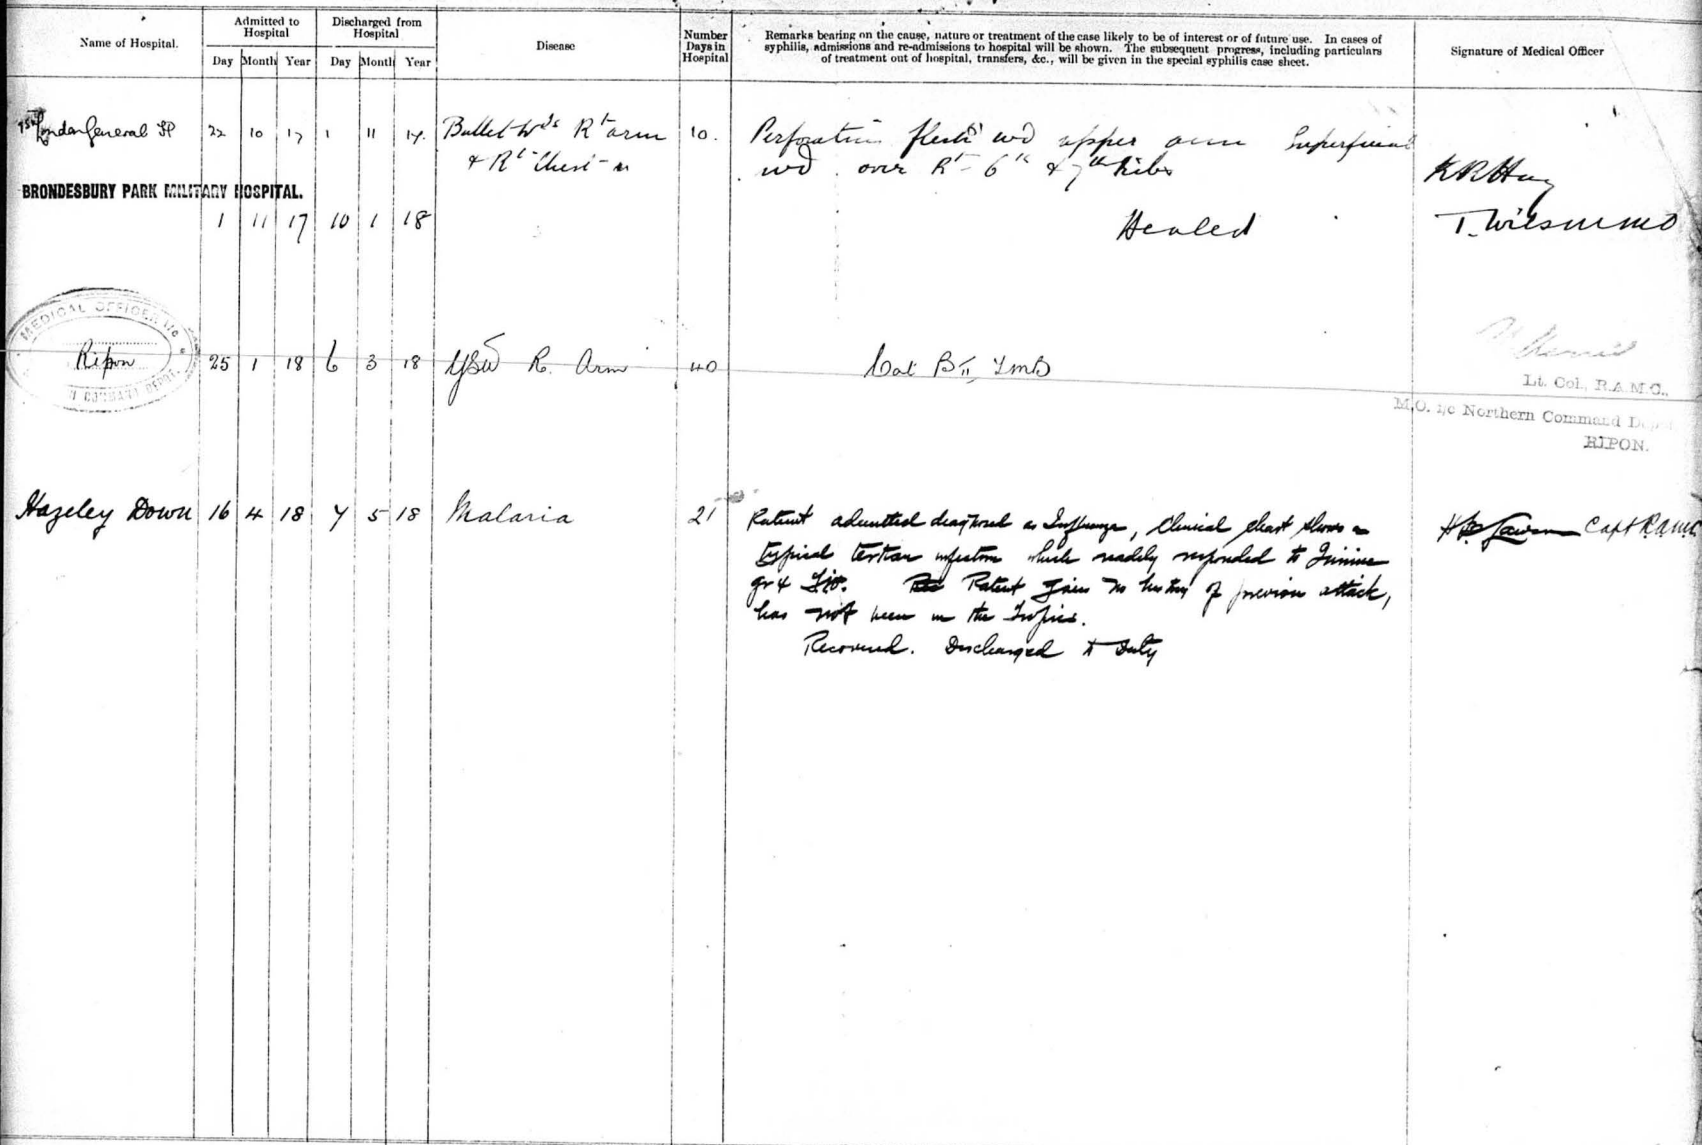 Name of Hospital.
Admitted to Hospital
Discharged from Hospital
Disease
Number Days in Hospital
Remarks bearing on the cause, nature or treatment of the case likely to be of interest or of future use. In cases of
syphilis, admissions and re-admissions to hospital will be shown. The subsequent progress, including particulars
of treatment out of hospital, transfers, &c., will be given in the special syphilis case sheet.
Signature of Medical Officer
Day Month Year Day Month Year
London General 22 10 17 1 11 17. Bullet Wds Rt arm 10. flesh wd upper arm Superficial
& Rt Chest wd over Rt 6th & 7th Ribs
BRONDESBURY PARK MILITARY HOSPITAL.
1 11 17 10 1 18 Healed T. Wilson MO
MEDICAL OFFICER I/c
Ripon 25 1 18 6 3 18 GSW R. Arm 40 Cat BII
COMMAND DEPOT.
Lt. Col., R.A.M.C.,
M.O. i/c Northern Command Depot
RIPON.
Hazeley Down 16 4 18 7 5 18 Malaria 21 Patient admitted diagnosed as Influenza, Clinical chart shows a
typical tertian infection which readily responded to Quinine
gr X Patient gives no history of previous attack,
has not been in the Tropics.
Recovered. Discharged to Duty
Capt RAMC